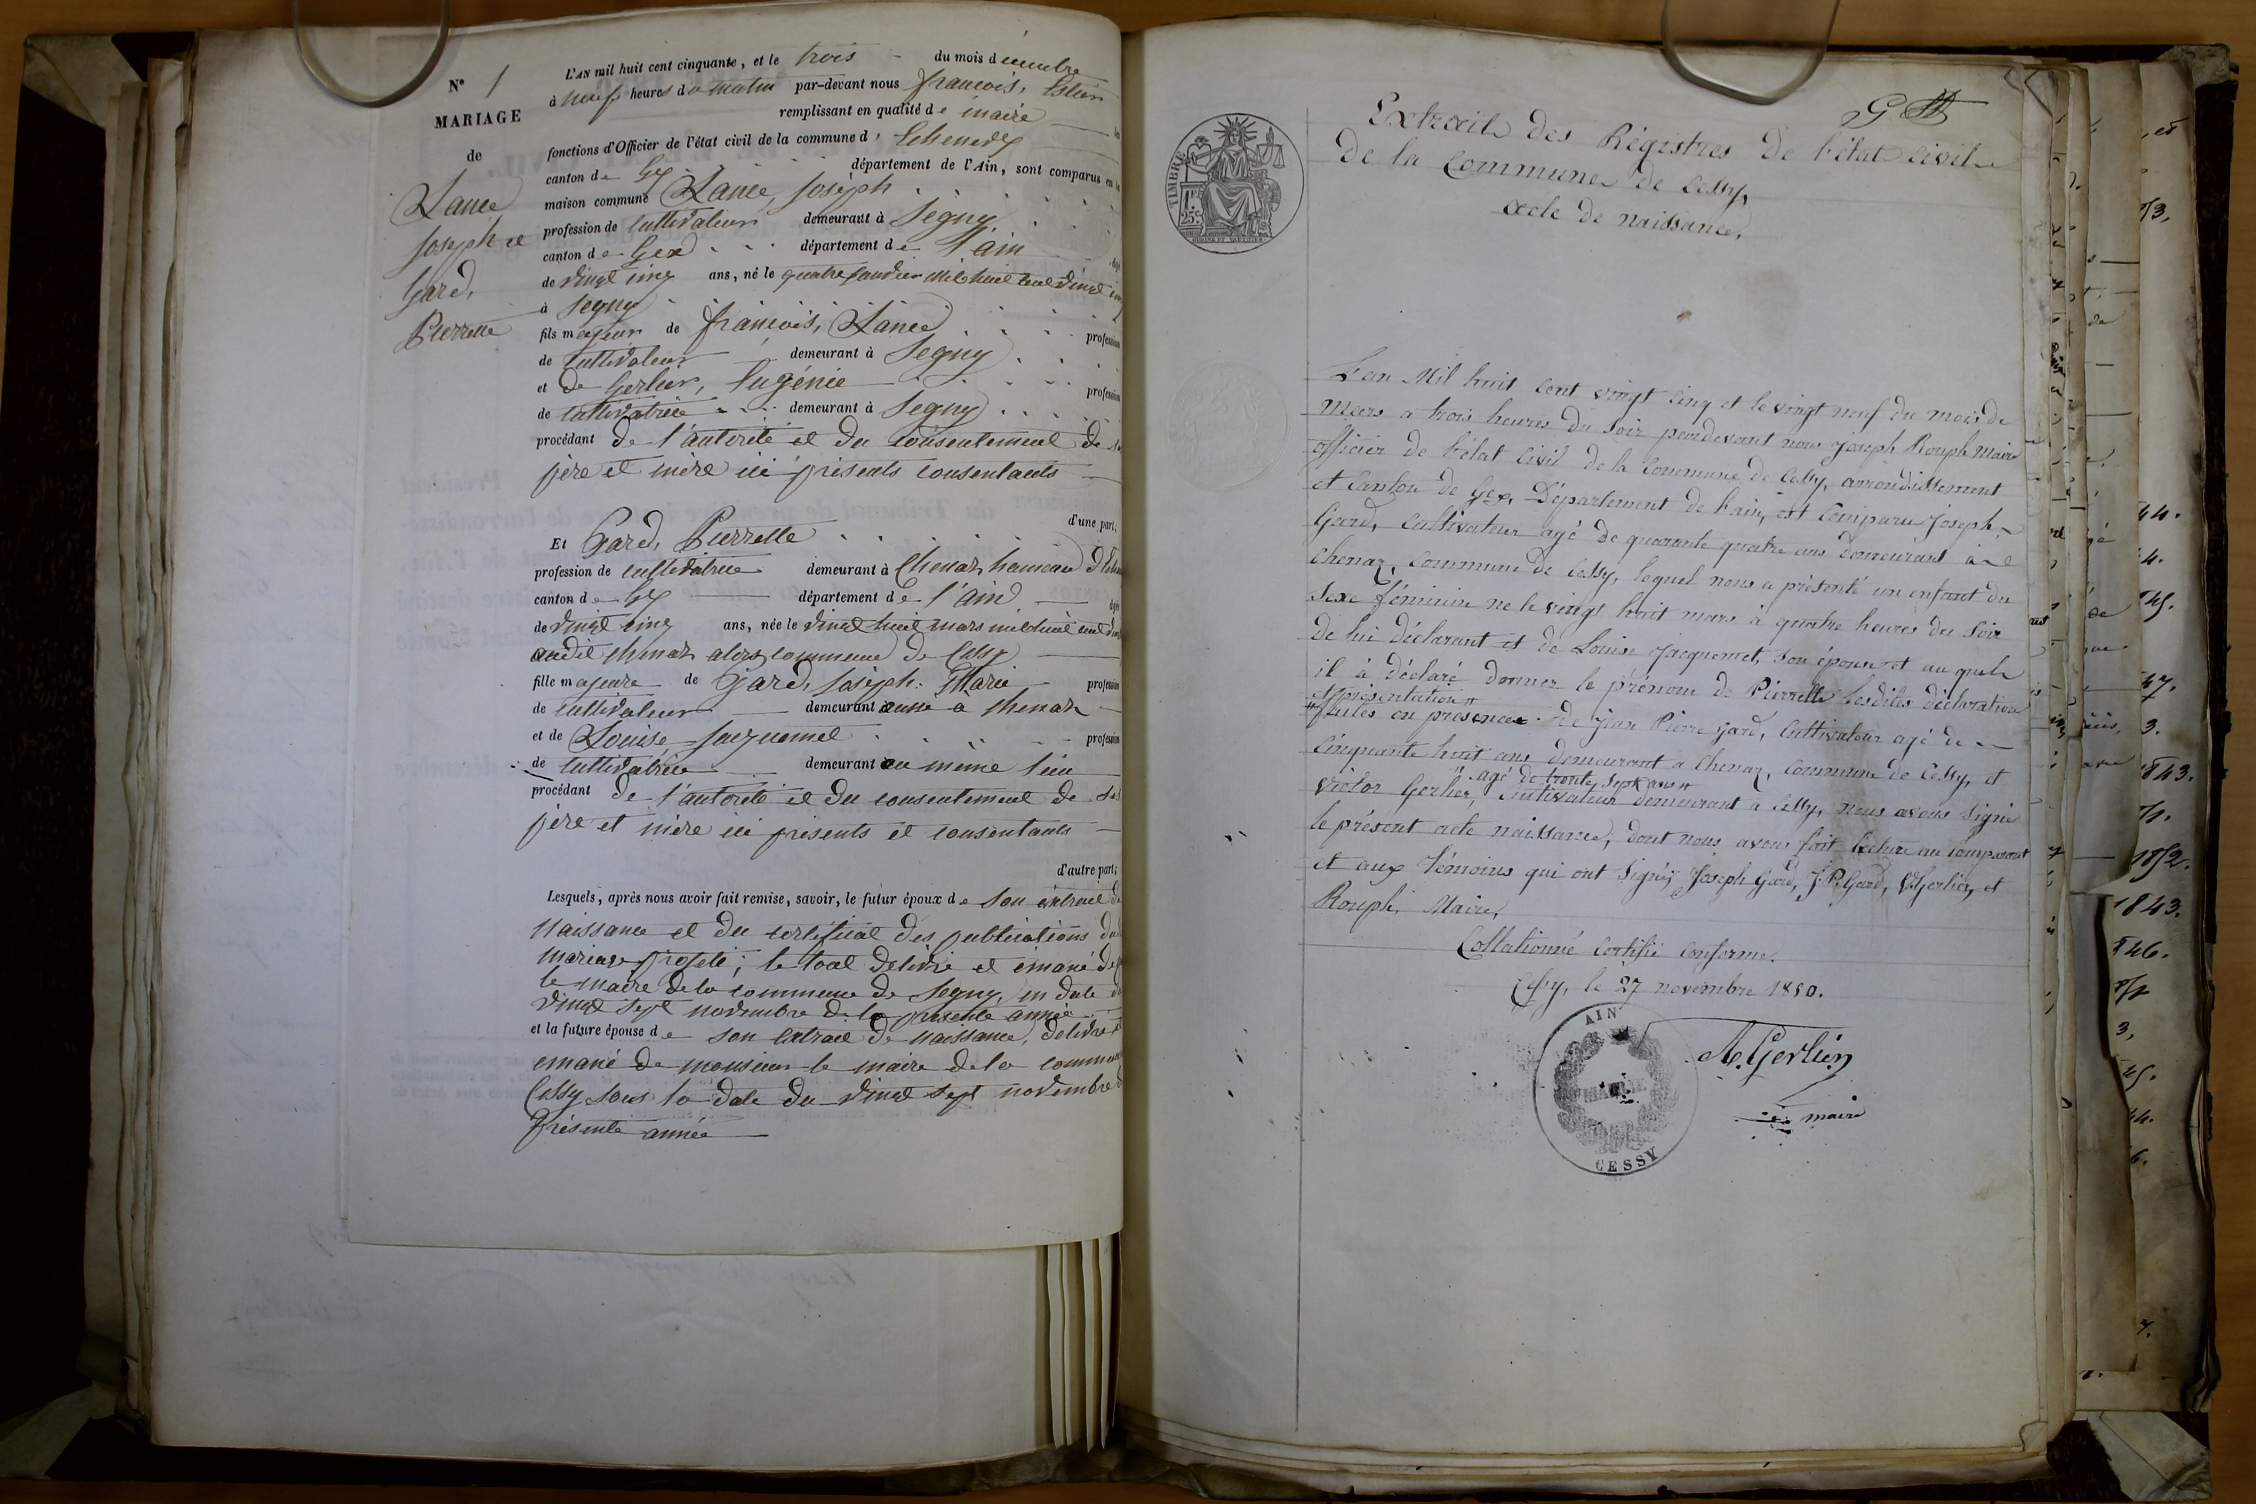 N° 1
MARIAGE
de
Lancé
Joseph et
Gard,
Pierrette
L'AN mil huit cent cinquante, et le trois du mois décembre
à neuf heures du matin par-devant nous françois,
remplissant en qualité de maire
fonctions d'Officier de l'état civil de la commune d'Echenevex
canton de Gex département de l'Ain, sont comparus en la
maison commune Lancé, Joseph
profession de cultivateur demeurant à Segny
canton de Gex département de l'ain
de vingt cinq ans, né le quatre janvier mil huit cent vingt cinq
à Segny
fils majeur de françois, Lancé profession
de cultivateur demeurant à Segny
et de Gerlier, Eugénie profession
de cultivatrice demeurant à Segny
procédant de l'autorité et du consentement de ses
père et mère ici présents consentants
d'une part;
Et Gard, Pierrette
profession de cultivatrice demeurant à Chenaz hameau d'Echen
canton de Gex département de l'ain âgée
de vingt cinq ans, née le vingt huit mars mil huit cent vingt
audit chenaz alors commune de Cessy
fille majeure de Gard, Joseph Marie profession
de cultivateur demeurant aussi a chenaz
et de Louise Jacquemet profession
de cultivatrice demeurant au même lieu
procédant de l'autorité et du consentement de ses
père et mère ici présents et consentants
d'autre part;
Lesquels, après nous avoir fait remise, savoir, le futur époux de son extrait de
Naissance et du certificat des publications du
mariage projeté; le tout délivré et émané de
le maire de la commune de Segny, en date du
vingt sept novembre de la présente année
et la future épouse de son extrait de naissance, délivré et
émané de monsieur le maire de la commune
Cessy sous la date du vingt sept novembre
présente année
TIMBRE
25c
Extrait des Régistres de l'état civil
de la Commune de Cessy,
acte de naissance,
L'an Mil huit cent vingt cinq et le vingt neuf du mois de
Mars a trois heures du soir pardevant nous Joseph Rouph Maire
officier de l'état civil de la Commune de Cessy, arrondissement
et Canton de Gex, Département de l'ain, est Comparu Joseph
Gard, Cultivateur agé de quarante quatre ans demeurant à
chenaz, Commune de Cessy, lequel nous a présenté un enfant du
Sexe féminin né le vingt huit mars à quatre heures du soir
de lui déclarant et de Louise Jacquemet, son épouse et au quel
il à déclaré donner le prénom de Pierrette lesdites déclaration
et présentation
faites en présence de jean Pierre gard, Cultivateur agé de
Cinquante huit ans demeurant a Chenaz, Commune de Cessy, et
agé de trente sept ans
victor Gerlier, Cultivateur demeurant a Cessy, nous avons signé
le présent acte naissance, dont nous avons fait lecture au comparant
et aux témoins qui ont signés Joseph Gard, J. P. Gard, V. Gerlier, et
Rouph, Maire,
Collationné certifié conforme.
Cessy, le 27 novembre 1850.
AIN
MAIRIE
CESSY
A. Gerlier
maire